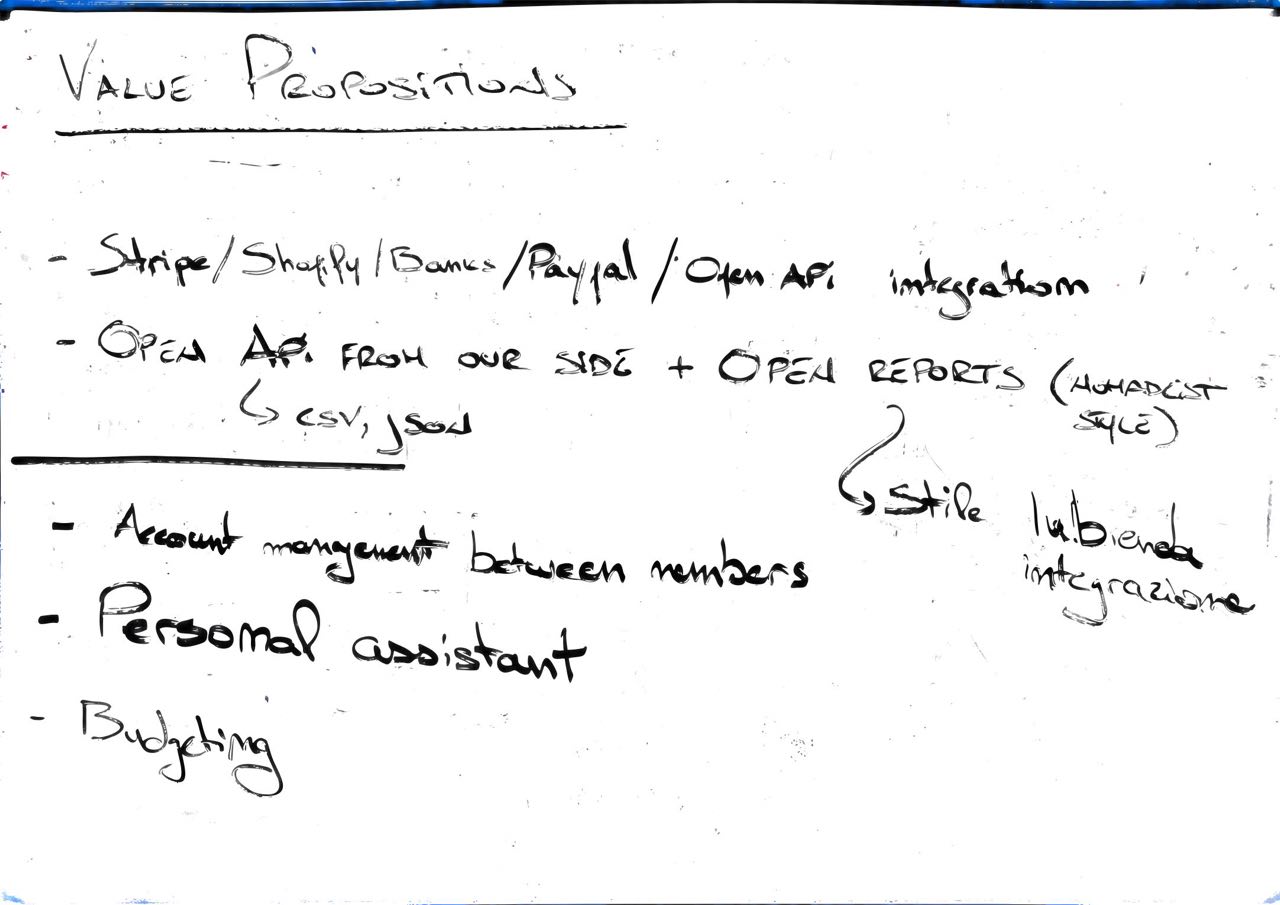 VALUE PROPOSITIONS
- Stripe/Shopify/Banks/Paypal/Open API integration
- OPEN API FROM OUR SIDE + OPEN REPORTS (NOMADLIST STYLE)
↳ CSV, JSON
↳ Stile integrazione
- Account management between members
- Personal assistant
- Budgeting